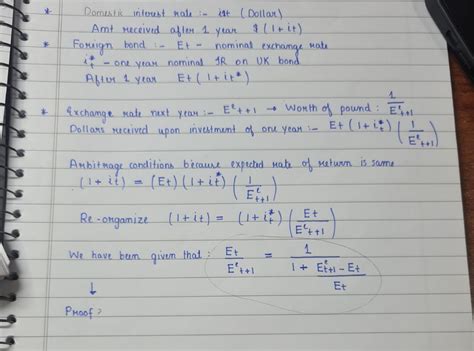 * Domestic interest rate :- it (Dollar)
Amt received after 1 year $(1+it)
* Foreign bond :- Et - nominal exchange rate
it* - one year nominal IR on UK bond
After 1 year Et(1+it*)
* Exchange rate next year :- Eᵉt+1 → Worth of pound : 1/Eᵉt+1
Dollars received upon investment of one year :- Et(1+it*)(1/Eᵉt+1)
Arbitrage conditions because expected rate of return is same
(1+it) = (Et)(1+it*)(1/Eᵉt+1)
Re-organize (1+it) = (1+it*)(Et/Eᵉt+1)
We have been given that : Et/Eᵉt+1 = 1/(1 + (Eᵉt+1 - Et)/Et)
↓
Proof ?